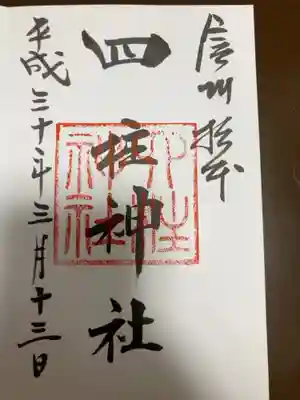 信州松本
四柱神社
四柱神社
平成三十年三月十三日